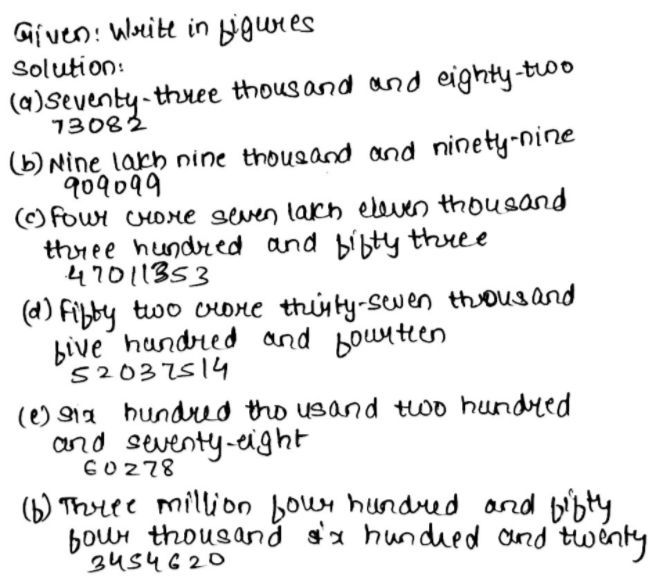 Given: Write in figures
Solution:
(a) Seventy-three thousand and eighty-two
73082
(b) Nine lakh nine thousand and ninety-nine
909099
(c) four crore seven lakh eleven thousand
three hundred and fifty three
47011353
(d) Fifty two crore thirty-seven thousand
five hundred and fourteen
52037514
(e) six hundred thousand two hundred
and seventy-eight
60278
(f) Three million four hundred and fifty
four thousand six hundred and twenty
3454620